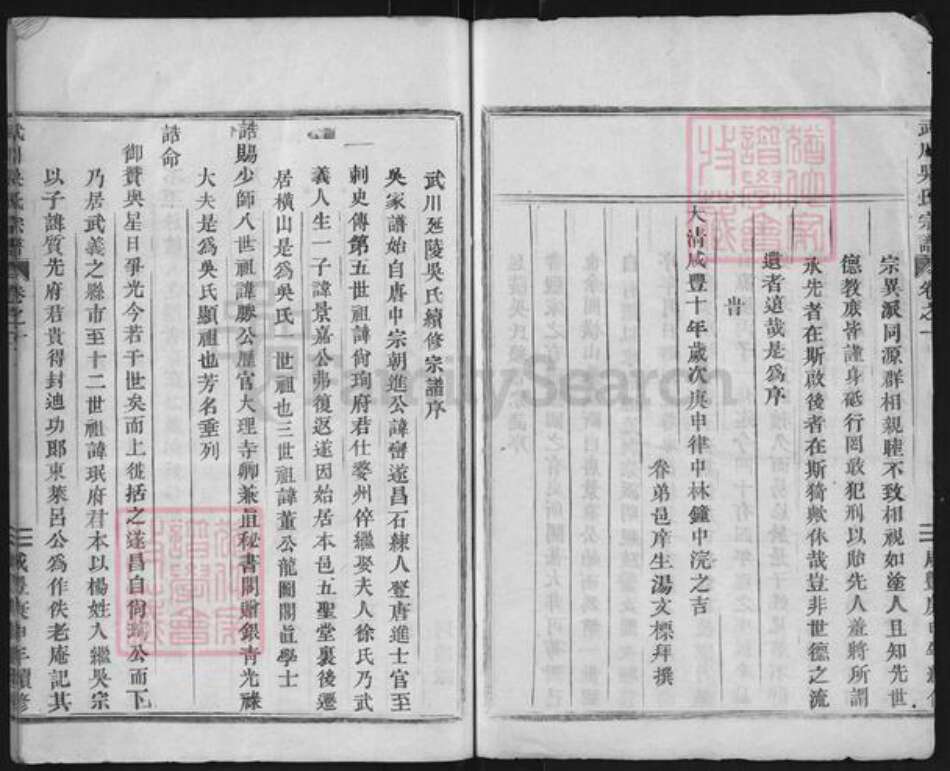 武川吳氏宗譜 卷之一
宗異派同源群相親睦不致相視如塗人且知先世
德教底皆謹身砥行罔敢犯刑以貽先人羞將所謂
承先者在斯啟後者在斯猗歟休哉豈非世德之流
遺者遠哉是為序
旹
大清咸豐十年歲次庚申律中林鐘中浣之吉
眷弟邑庠生湯文標拜撰
武川延陵吳氏續修宗譜序
吳家譜始自唐中宗朝進公諱巒遂昌石練人登唐進士官至
刺史傳第五世祖諱尚珣府君仕婺州倅繼娶夫人徐氏乃武
義人生一子諱景嘉公弗復返遂因始居本邑五聖堂裏後遷
居橫山是為吳氏一世祖也三世祖諱董公龍圖閣直學士
誥賜少師八世祖諱勝公歷官大理寺卿兼直秘書閣贈銀青光祿
大夫是為吳氏顯祖也芳名垂列
誥命
御贊與星日爭光今若干世矣而上從括之遂昌自尚珣公而下
乃居武義之縣市至十二世祖諱珉府君本以楊姓入繼吳宗
以子諱質先府君貴得封迪功郎東萊呂公為作佚老庵記其
武川吳氏宗譜 卷之一 咸豐庚申年續修
FamilySearch